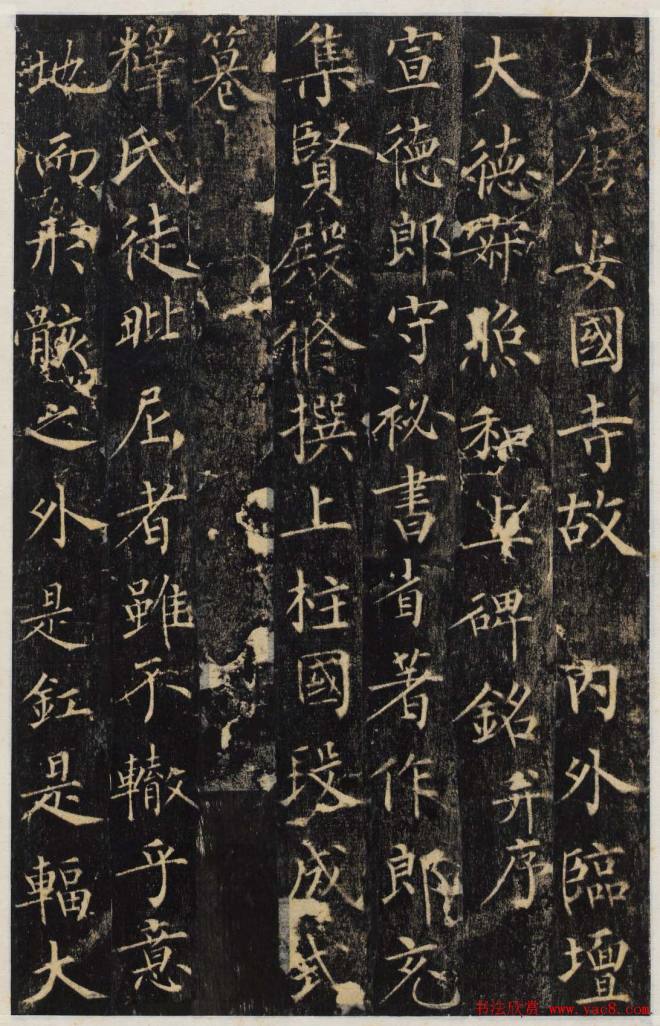 大唐安國寺故 內外臨壇
大德寂照和上碑銘并序
宣德郎守祕書省著作郎充
集賢殿修撰上柱國段成式
篹
釋氏徒毗尼者雖不轍乎意
地而形骸之外是釭是輻大
书法欣赏 www.yac8.com